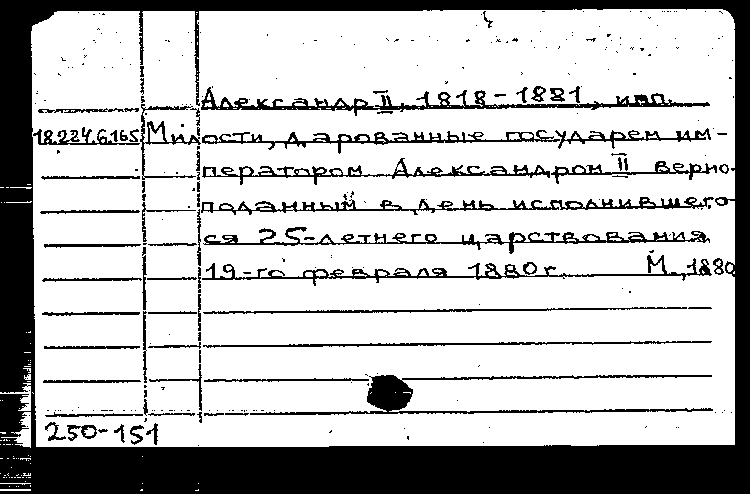 Александр II, 1818-1881, имп.
18.224.6.165 Милости, дарованные государем им-
ператором Александром II верно-
поданный в день исполнившего-
ся 25-летнего царствования
19-го февраля 1880 г. М., 1880
250-151